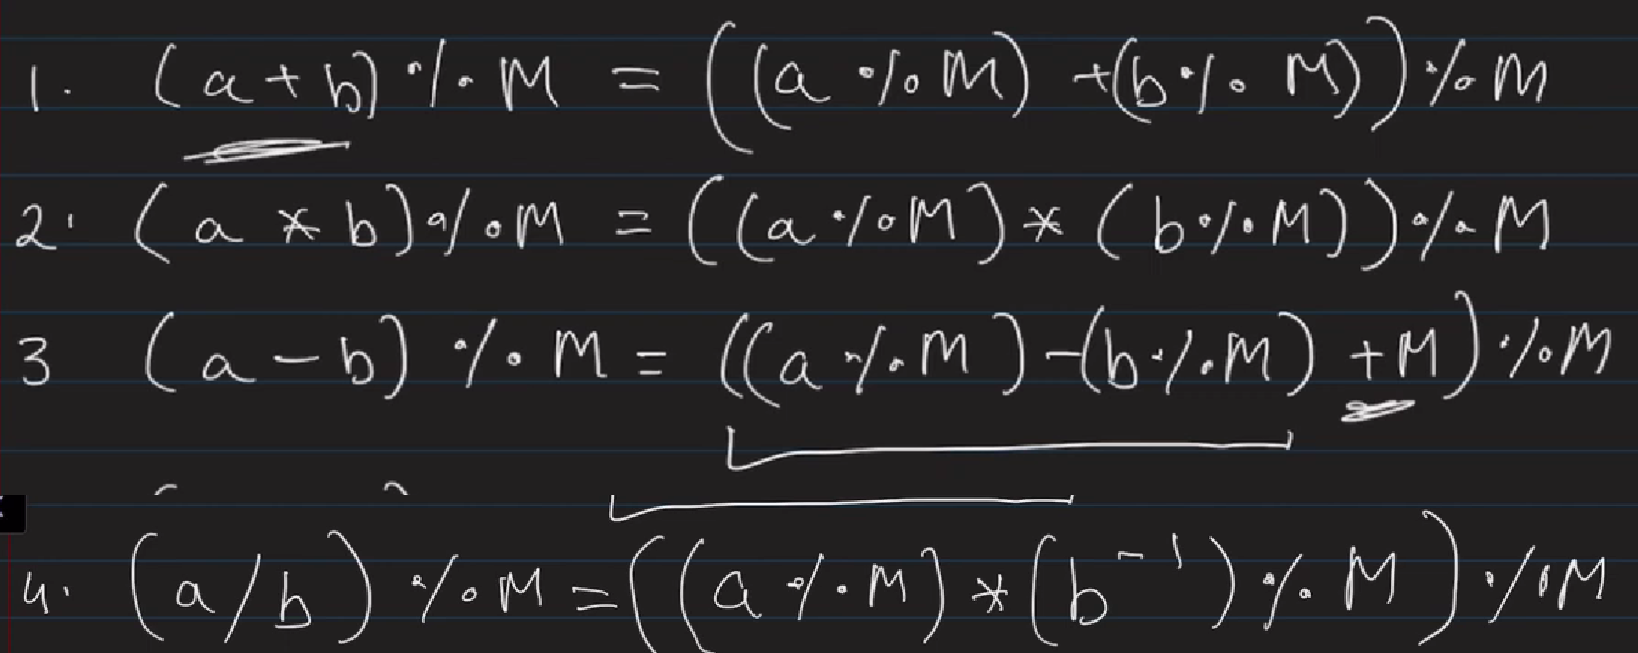 1. (a + b) % M = ((a % M) + (b % M)) % M
2. (a * b) % M = ((a % M) * (b % M)) % M
3 (a - b) % M = ((a % M) - (b % M) + M) % M
4. (a / b) % M = ((a % M) * (b⁻¹) % M) % M